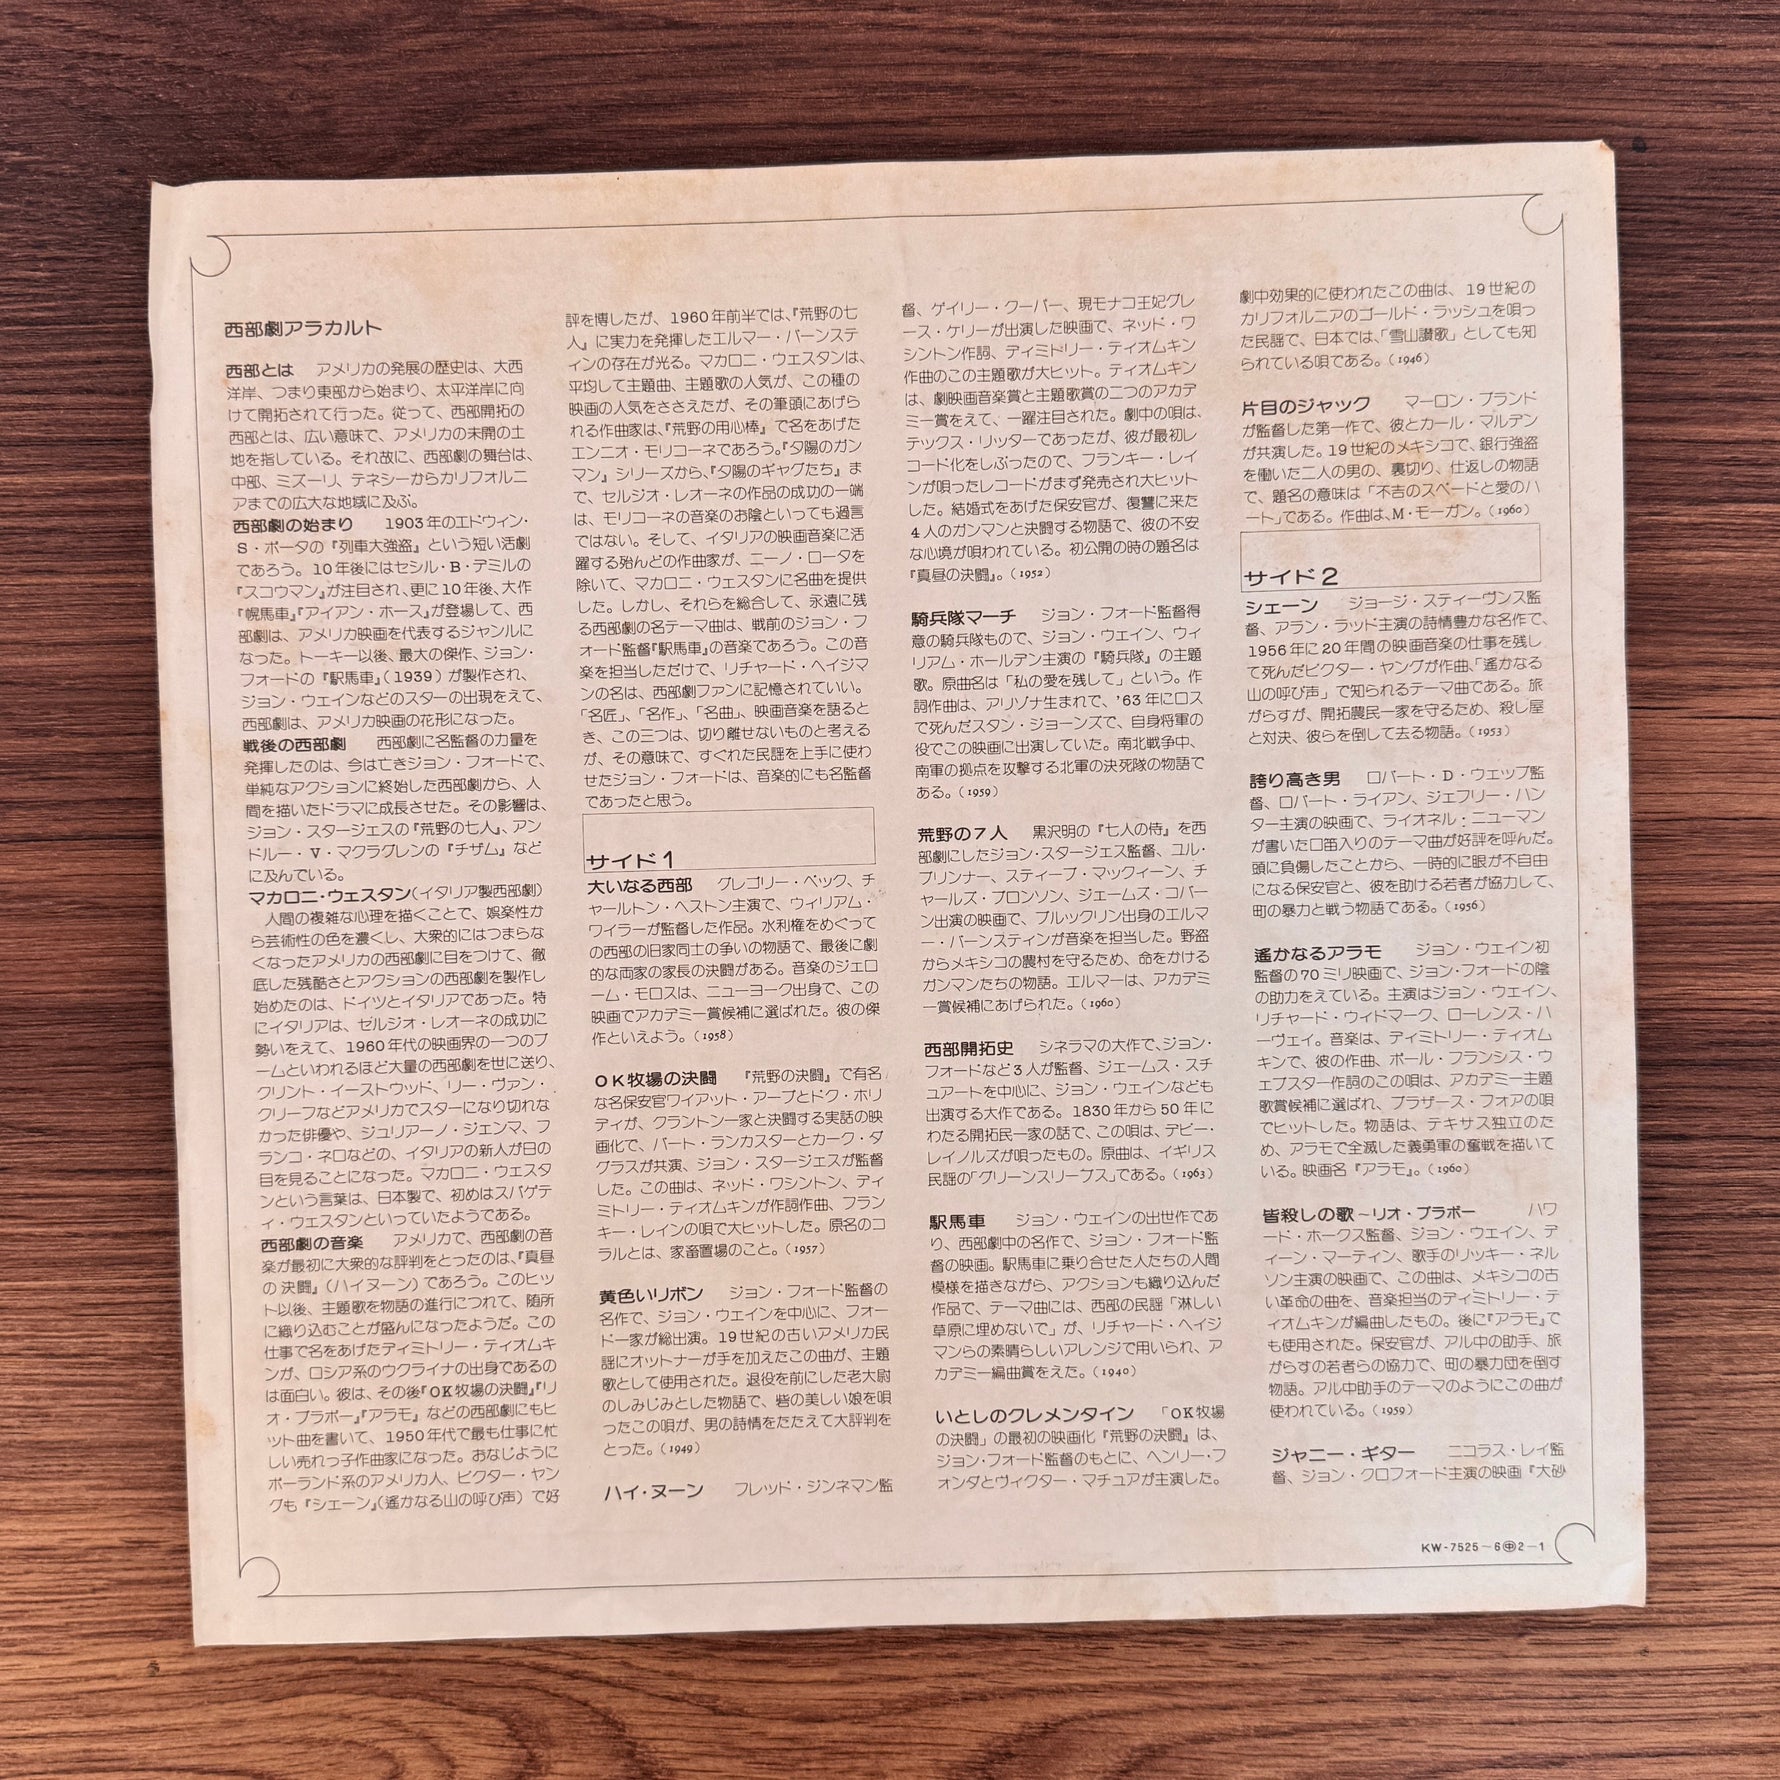 西部劇アラカルト
西部とは　アメリカの発展の歴史は、大西
洋岸、つまり東部から始まり、太平洋岸に向
けて開拓されて行った。従って、西部開拓の
西部とは、広い意味で、アメリカの未開の土
地を指している。それ故に、西部劇の舞台は、
中部、ミズーリ、テネシーからカリフォルニ
アまでの広大な地域に及ぶ。
西部劇の始まり　1903年のエドウィン・
S・ポータの『列車大強盗』という短い活劇
であろう。10年後にはセシル・B・デミルの
『スコウマン』が注目され、更に10年後、大作
『幌馬車』『アイアン・ホース』が登場して、西
部劇は、アメリカ映画を代表するジャンルに
なった。トーキー以後、最大の傑作、ジョン・
フォードの『駅馬車』(1939)が製作され、
ジョン・ウェインなどのスターの出現をえて、
西部劇は、アメリカ映画の花形になった。
戦後の西部劇　西部劇に名監督の力量を
発揮したのは、今は亡きジョン・フォードで、
単純なアクションに終始した西部劇から、人
間を描いたドラマに成長させた。その影響は、
ジョン・スタージェスの『荒野の七人』、アン
ドルー・V・マクラグレンの『チザム』など
に及んでいる。
マカロニ・ウェスタン(イタリア製西部劇)
人間の複雑な心理を描くことで、娯楽性か
ら芸術性の色を濃くし、大衆的にはつまらな
くなったアメリカの西部劇に目をつけて、徹
底した残酷さとアクションの西部劇を製作し
始めたのは、ドイツとイタリアであった。特
にイタリアは、ゼルジオ・レオーネの成功に
勢いをえて、1960年代の映画界の一つのブ
ームといわれるほど大量の西部劇を世に送り、
クリント・イーストウッド、リー・ヴァン・
クリーフなどアメリカでスターになり切れな
かった俳優や、ジュリアーノ・ジェンマ、フ
ランコ・ネロなどの、イタリアの新人が日の
目を見ることになった。マカロニ・ウエスタ
ンという言葉は、日本製で、初めはスパゲテ
ィ・ウェスタンといっていたようである。
西部劇の音楽　アメリカで、西部劇の音
楽が最初に大衆的な評判をとったのは、『真昼
の決闘』(ハイヌーン)であろう。このヒッ
ト以後、主題歌を物語の進行につれて、随所
に織り込むことが盛んになったようだ。この
仕事で名をあげたディミトリー・ティオムキ
ンが、ロシア系のウクライナの出身であるの
は面白い。彼は、その後『OK牧場の決闘』『リ
オ・ブラボー』『アラモ』などの西部劇にもヒ
ット曲を書いて、1950年代で最も仕事に忙
しい売れっ子作曲家になった。おなじように
ポーランド系のアメリカ人、ビクター・ヤン
グも『シェーン』(遙かなる山の呼び声)で好
評を博したが、1960年前半では、『荒野の七
人』に実力を発揮したエルマー・バーンステ
ィンの存在が光る。マカロニ・ウェスタンは、
平均して主題曲、主題歌の人気が、この種の
映画の人気をささえたが、その筆頭にあげら
れる作曲家は、『荒野の用心棒』で名をあげた
エンニオ・モリコーネであろう。『夕陽のガン
マン』シリーズから、『夕陽のギャグたち』ま
で、セルジオ・レオーネの作品の成功の一端
は、モリコーネの音楽のお陰といっても過言
ではない。そして、イタリアの映画音楽に活
躍する殆んどの作曲家が、ニーノ・ロータを
除いて、マカロニ・ウェスタンに名曲を提供
した。しかし、それらを総合して、永遠に残
る西部劇の名テーマ曲は、戦前のジョン・フ
ォード監督『駅馬車』の音楽であろう。この音
楽を担当しただけで、リチャード・ヘイジマ
ンの名は、西部劇ファンに記憶されていい。
「名匠」、「名作」、「名曲」、映画音楽を語ると
き、この三つは、切り離せないものと考える
が、その意味で、すぐれた民謡を上手に使わ
せたジョン・フォードは、音楽的にも名監督
であったと思う。
サイド1
大いなる西部　グレゴリー・ペック、チ
ャールトン・ヘストン主演で、ウィリアム・
ワイラーが監督した作品。水利権をめぐって
の西部の旧家同士の争いの物語で、最後に劇
的な両家の家長の決闘がある。音楽のジェロ
ーム・モロスは、ニューヨーク出身で、この
映画でアカデミー賞候補に選ばれた。彼の傑
作といえよう。(1958)
OK牧場の決闘　『荒野の決闘』で有名
な名保安官ワイアット・アープとドク・ホリ
ディが、クラントン一家と決闘する実話の映
画化で、バート・ランカスターとカーク・ダ
グラスが共演、ジョン・スタージェスが監督
した。この曲は、ネッド・ワシントン、ディ
ミトリー・ティオムキンが作詞作曲、フラン
キー・レインの唄で大ヒットした。原名のコ
ラルとは、家畜置場のこと。(1957)
黄色いリボン　ジョン・フォード監督の
名作で、ジョン・ウェインを中心に、フォー
ド一家が総出演。19世紀の古いアメリカ民
謡にオットナーが手を加えたこの曲が、主題
歌として使用された。退役を前にした老大尉
のしみじみとした物語で、砦の美しい娘を唄
ったこの唄が、男の詩情をたたえて大評判を
とった。(1949)
ハイ・ヌーン　フレッド・ジンネマン監
督、ゲイリー・クーパー、現モナコ王妃グレ
ース・ケリーが出演した映画で、ネッド・ワ
シントン作詞、ディミトリー・ティオムキン
作曲のこの主題歌が大ヒット。ティオムキン
は、劇映画音楽賞と主題歌賞の二つのアカデ
ミー賞をえて、一躍注目された。劇中の唄は、
テックス・リッターであったが、彼が最初レ
コード化をしぶったので、フランキー・レイ
ンが唄ったレコードがまず発売され大ヒット
した。結婚式をあげた保安官が、復讐に来た
4人のガンマンと決闘する物語で、彼の不安
な心境が唄われている。初公開の時の題名は
『真昼の決闘』。(1952)
騎兵隊マーチ　ジョン・フォード監督得
意の騎兵隊もので、ジョン・ウエイン、ウィ
リアム・ホールデン主演の『騎兵隊』の主題
歌。原曲名は「私の愛を残して」という。作
詞作曲は、アリゾナ生まれで、'63年にロス
で死んだスタン・ジョーンズで、自身将軍の
役でこの映画に出演していた。南北戦争中、
南軍の拠点を攻撃する北軍の決死隊の物語で
ある。(1959)
荒野の7人　黒沢明の『七人の侍』を西
部劇にしたジョン・スタージェス監督、ユル・
ブリンナー、スティーブ・マックィーン、チ
ャールズ・ブロンソン、ジェームズ・コバー
ン出演の映画で、ブルックリン出身のエルマ
ー・バーンスティンが音楽を担当した。野盗
からメキシコの農村を守るため、命をかける
ガンマンたちの物語。エルマーは、アカデミ
ー賞候補にあげられた。(1960)
西部開拓史　シネラマの大作で、ジョン・
フォードなど3人が監督、ジェームス・スチ
ュアートを中心に、ジョン・ウェインなども
出演する大作である。1830年から50年に
わたる開拓民一家の話で、この唄は、デビー・
レイノルズが唄ったもの。原曲は、イギリス
民謡の「グリーンスリーブス」である。(1963)
駅馬車　ジョン・ウェインの出世作であ
り、西部劇中の名作で、ジョン・フォード監
督の映画。駅馬車に乗り合せた人たちの人間
模様を描きながら、アクションも織り込んだ
作品で、テーマ曲には、西部の民謡「淋しい
草原に埋めないで」が、リチャード・ヘイジ
マンらの素晴らしいアレンジで用いられ、ア
カデミー編曲賞をえた。(1940)
いとしのクレメンタイン　「OK牧場
の決闘」の最初の映画化『荒野の決闘』は、
ジョン・フォード監督のもとに、ヘンリー・フ
ォンダとヴィクター・マチュアが主演した。
劇中効果的に使われたこの曲は、19世紀の
カリフォルニアのゴールド・ラッシュを唄っ
た民謡で、日本では、「雪山讃歌」としても知
られている唄である。(1946)
片目のジャック　マーロン・ブランド
が監督した第一作で、彼とカール・マルデン
が共演した。19世紀のメキシコで、銀行強盗
を働いた二人の男の、裏切り、仕返しの物語
で、題名の意味は「不吉のスペードと愛のハ
ート」である。作曲は、M・モーガン。(1960)
サイド2
シェーン　ジョージ・スティーヴンス監
督、アラン・ラッド主演の詩情豊かな名作で、
1956年に20年間の映画音楽の仕事を残し
て死んだビクター・ヤングが作曲、「遙かなる
山の呼び声」で知られるテーマ曲である。旅
がらすが、開拓農民一家を守るため、殺し屋
と対決、彼らを倒して去る物語。(1953)
誇り高き男　ロバート・D・ウエッブ監
督、ロバート・ライアン、ジェフリー・ハン
ター主演の映画で、ライオネル・ニューマン
が書いた口笛入りのテーマ曲が好評を呼んだ。
頭に負傷したことから、一時的に眼が不自由
になる保安官と、彼を助ける若者が協力して、
町の暴力と戦う物語である。(1956)
遙かなるアラモ　ジョン・ウェイン初
監督の70ミリ映画で、ジョン・フォードの陰
の助力をえている。主演はジョン・ウェイン、
リチャード・ウィドマーク、ローレンス・ハ
ーヴェイ。音楽は、ディミトリー・ティオム
キンで、彼の作曲、ポール・フランシス・ウ
エブスター作詞のこの唄は、アカデミー主題
歌賞候補に選ばれ、ブラザース・フォアの唄
でヒットした。物語は、テキサス独立のた
め、アラモで全滅した義勇軍の奮戦を描いて
いる。映画名『アラモ』。(1960)
皆殺しの歌～リオ・ブラボー　ハワ
ード・ホークス監督、ジョン・ウェイン、デ
ィーン・マーティン、歌手のリッキー・ネル
ソン主演の映画で、この曲は、メキシコの古
い革命の曲を、音楽担当のディミトリー・テ
ィオムキンが編曲したもの。後に『アラモ』で
も使用された。保安官が、アル中の助手、旅
がらすの若者らの協力で、町の暴力団を倒す
物語。アル中助手のテーマのようにこの曲が
使われている。(1959)
ジャニー・ギター　ニコラス・レイ監
督、ジョン・クロフォード主演の映画『大砂
KW-7525～6㊥2－1